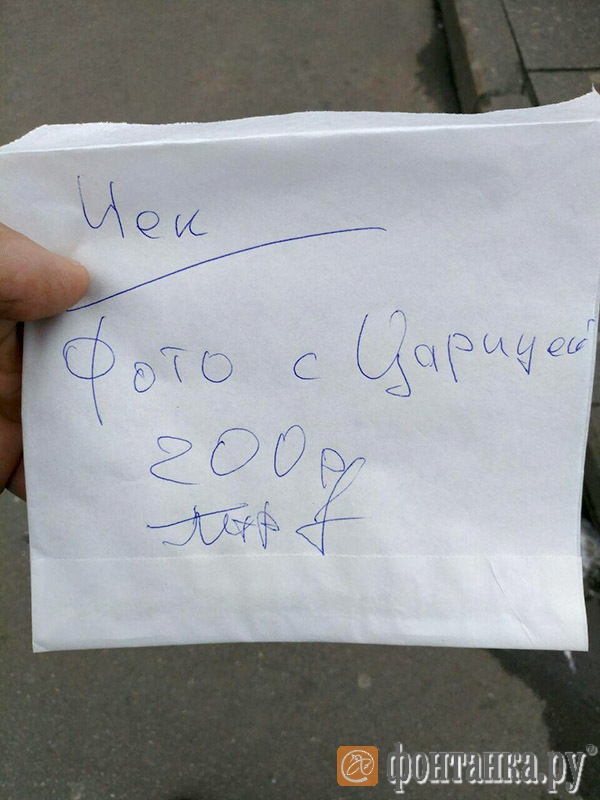 Чек
Фото с Царицей
200 р
фонтанка.ру